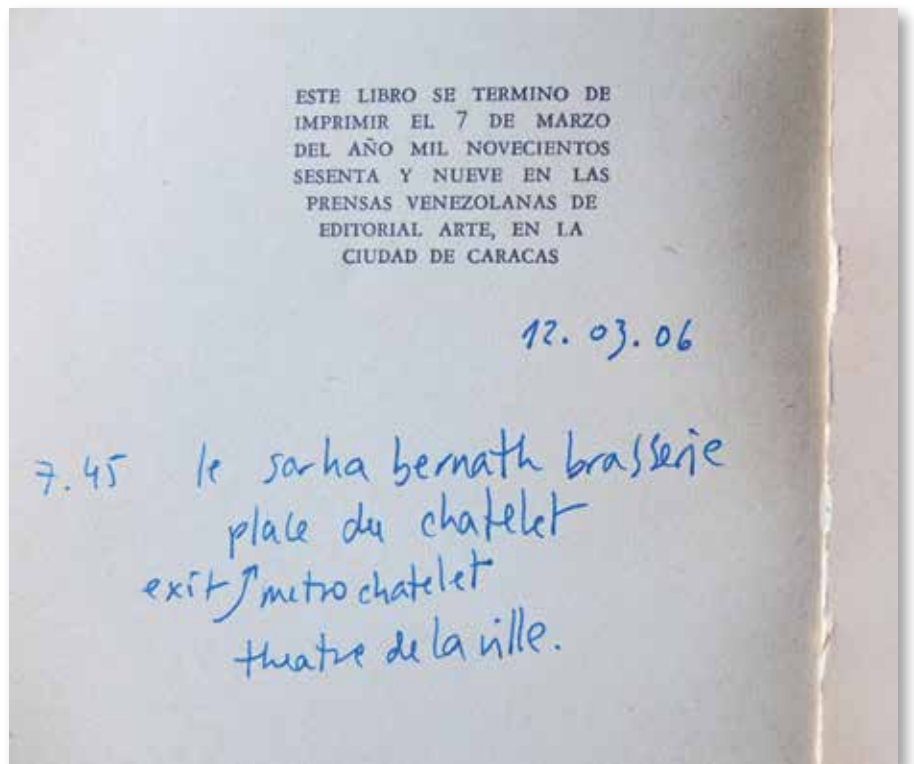 ESTE LIBRO SE TERMINO DE
IMPRIMIR EL 7 DE MARZO
DEL AÑO MIL NOVECIENTOS
SESENTA Y NUEVE EN LAS
PRENSAS VENEZOLANAS DE
EDITORIAL ARTE, EN LA
CIUDAD DE CARACAS
12.03.06
7.45 le sarha bernath brasserie
place du chatelet
exit metro chatelet
theatre de la ville.